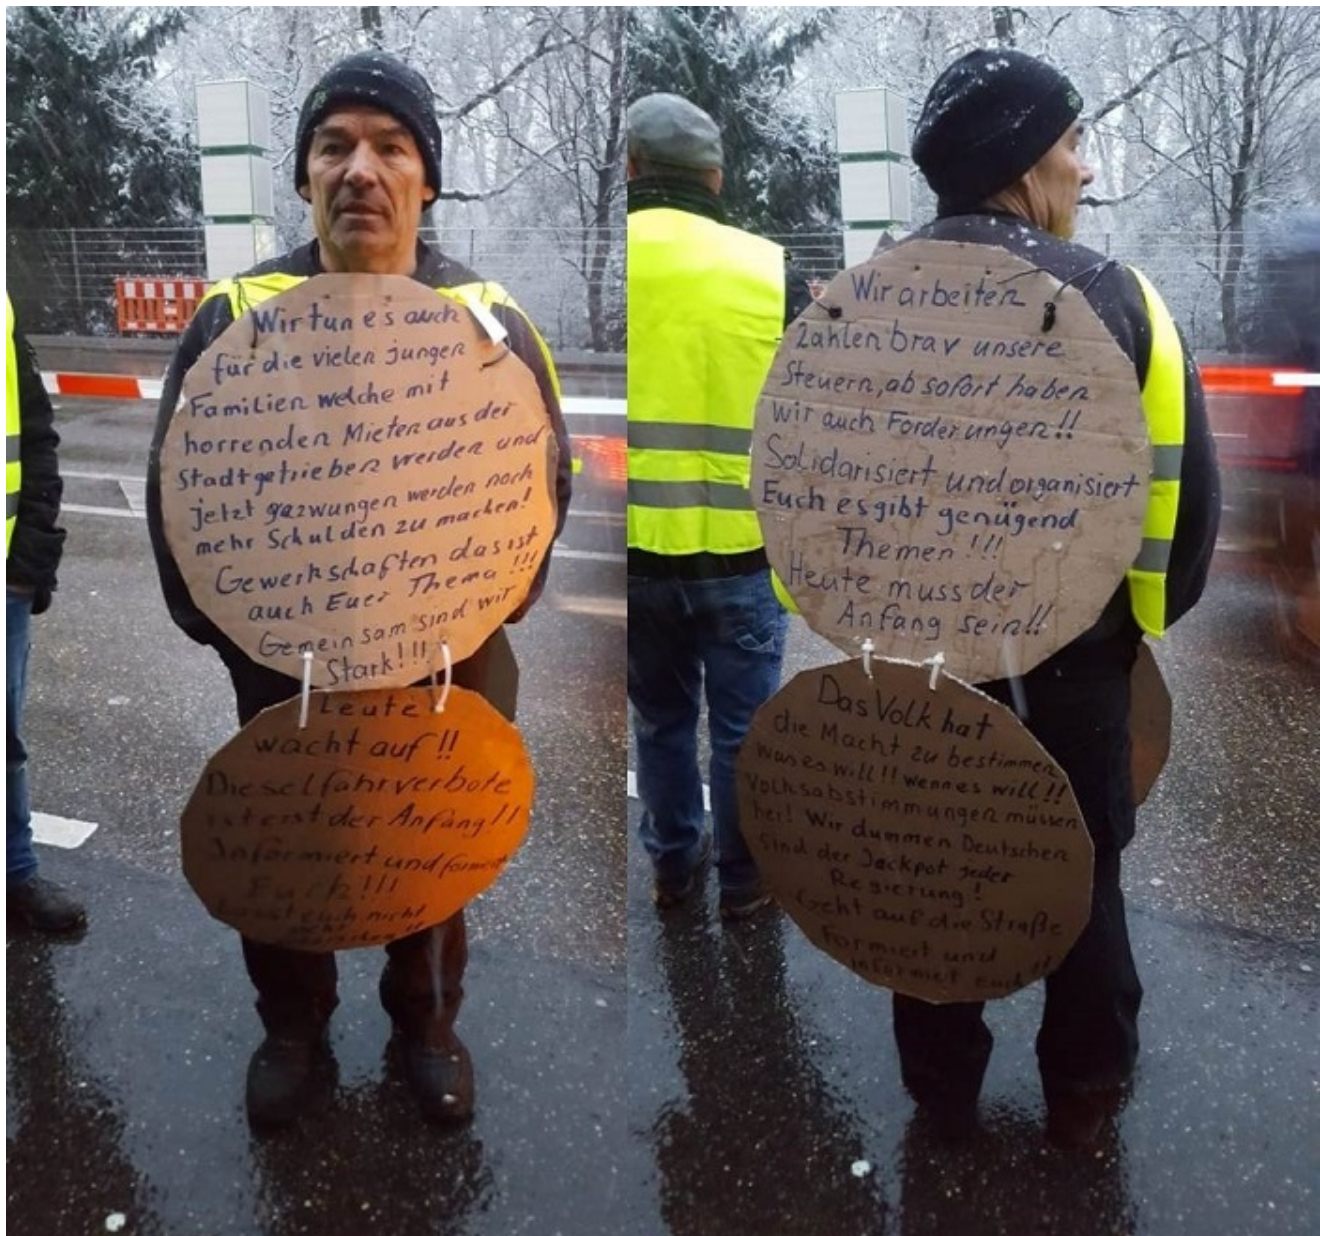 Wir tun es auch
für die vielen jungen
Familien welche mit
horrenden Mieten aus der
Stadt getrieben werden und
jetzt gezwungen werden noch
mehr Schulden zu machen!
Gewerkschaften das ist
auch Euer Thema !!!
Gemeinsam sind wir
Stark!!!
Leute
wacht auf!!
Dieselfahrverbote
ist erst der Anfang!!
Informiert und formiert
Euch!!!
Lasst euch nicht
Wir arbeiten
Zahlen brav unsere
Steuern, ab sofort haben
wir auch Forderungen!!
Solidarisiert und organisiert
Euch es gibt genügend
Themen!!!
Heute muss der
Anfang sein!!
Das Volk hat
die Macht zu bestimmen
was es will!! wenn es will!!
Volksabstimmungen müssen
her! Wir dummen Deutschen
sind der Jackpot jeder
Regierung!
Geht auf die Straße
Formiert und
Informiert euch!!